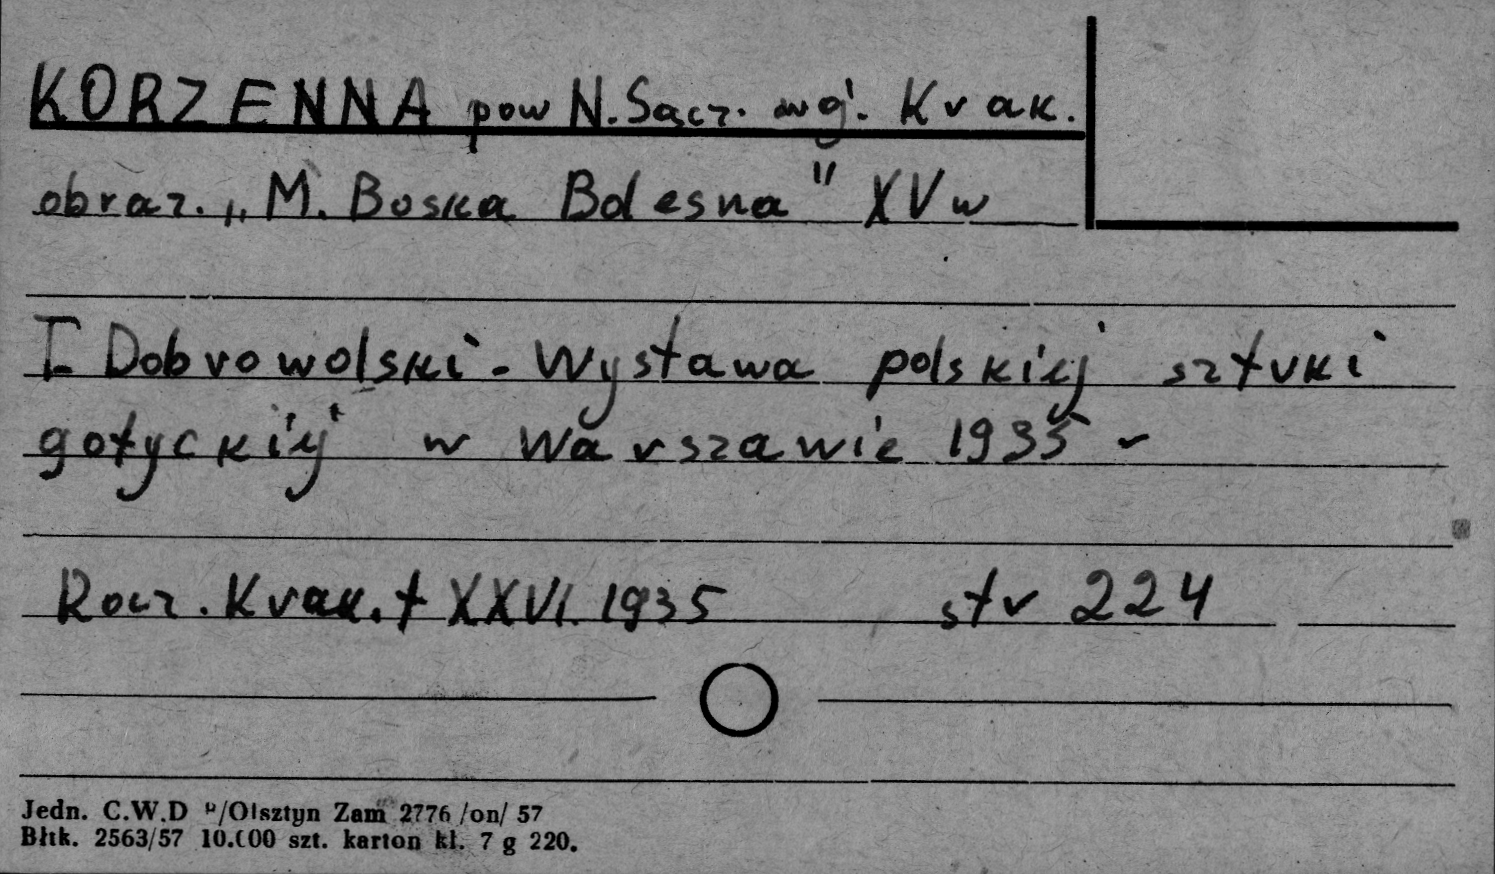 KORZENNA pow N. Sącz. woj. Krak.
obraz. „M. Boska Bolesna" XV w
T Dobrowolski - Wystawa polskiej sztuki
gotyckiej w Warszawie 1935 r
Rocz. Krak. t XXVI. 1935 str 224
Jedn. C.W.D /Olsztyn Zam 2776 /on/ 57
Błtk. 2563/57 10.000 szt. karton kl. 7 g 220.